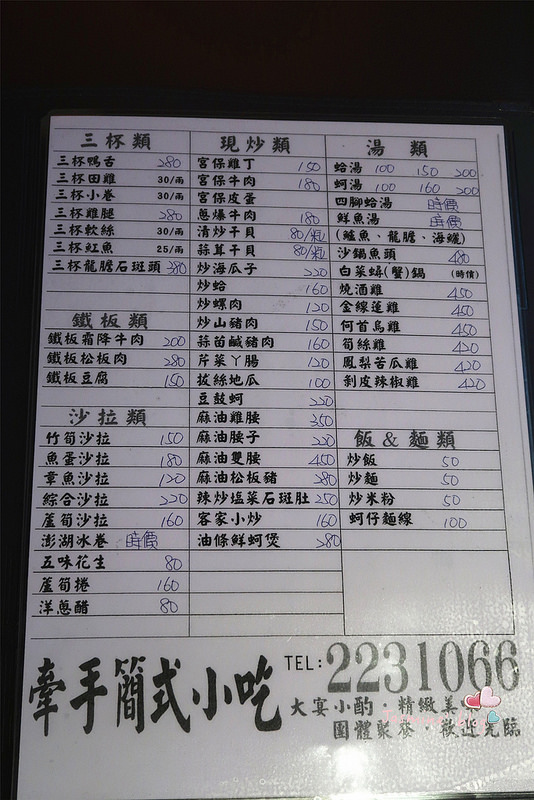 三杯類
三杯鴨舌 280
三杯田雞 30/兩
三杯小卷 30/兩
三杯雞腿 280
三杯軟絲 30/兩
三杯魟魚 25/兩
三杯龍膽石斑頭 380
鐵板類
鐵板霜降牛肉 200
鐵板松板肉 280
鐵板豆腐 150
沙拉類
竹筍沙拉 150
魚蛋沙拉 180
章魚沙拉 120
綜合沙拉 220
蘆筍沙拉 160
澎湖冰卷 時價
五味花生 80
蘆筍捲 160
洋蔥醋 80
現炒類
宮保雞丁 150
宮保牛肉 180
宮保皮蛋
蔥爆牛肉 180
清炒干貝 80/粒
蒜茸干貝 80/粒
炒海瓜子 220
炒蛤 160
炒螺肉 120
炒山豬肉 150
蒜苗鹹豬肉 160
芹菜丫腸 120
拔絲地瓜 100
豆鼓蚵 220
麻油雞腰 350
麻油腰子 220
麻油雙腰 450
麻油松板豬 280
辣炒塩菜石斑肚 250
客家小炒 160
油條鮮蚵煲 280
湯類
蛤湯 100 150 200
蚵湯 100 160 200
四腳蛤湯 時價
鮮魚湯 時價
(鱸魚、龍膽、海鱺)
沙鍋魚頭 480
白菜蟳(蟹)鍋 (時價)
燒酒雞 450
金線蓮雞 450
何首烏雞 450
筍絲雞 420
鳳梨苦瓜雞 420
剝皮辣椒雞 420
飯&麵類
炒飯 50
炒麵 50
炒米粉 50
蚵仔麵線 100
牽手簡式小吃
TEL:2231066
大宴小酌·精緻美味
團體聚餐·歡迎光臨